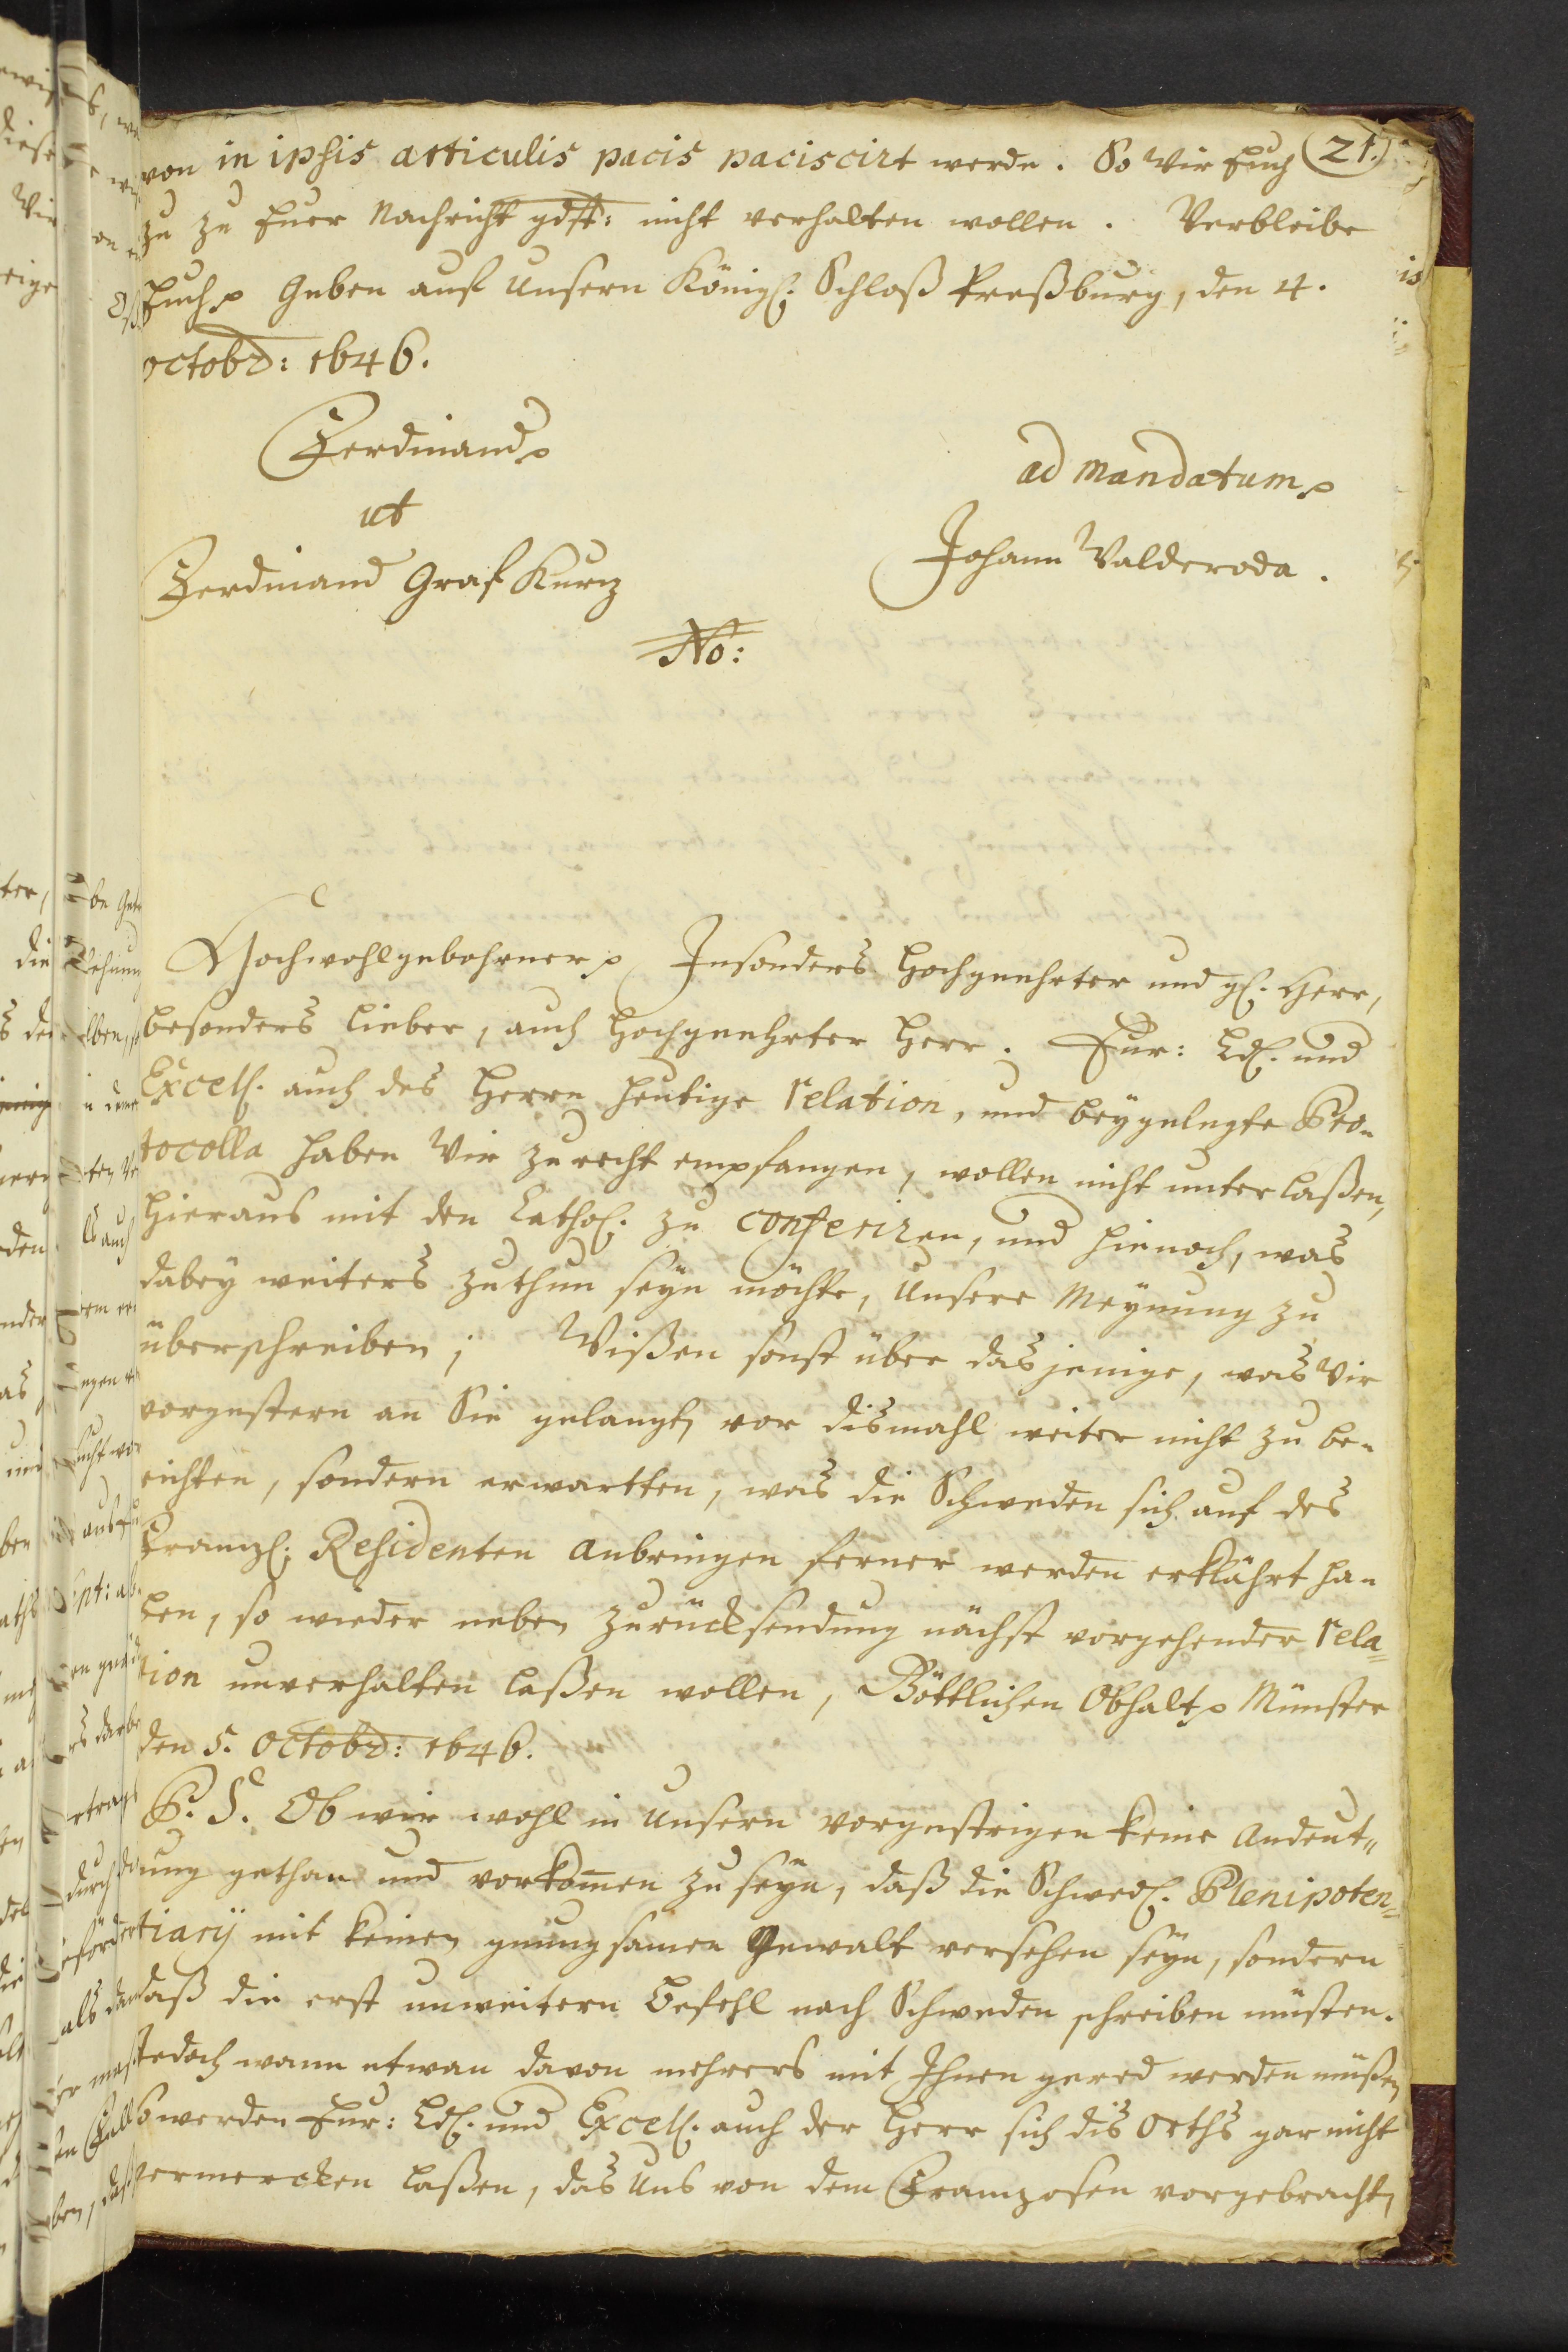 von in ipsis articulis pacis paciscirt werde. So Wir Euch (21.)
zu zu Euer Nachricht gdst: nicht verhalten wollen. Verbleibe
Euch p Geben auf Unsern Königl: Schloß Preßburg, den 4.
octobr: 1646.
Ferdinand p
ad mandatum p
ut
Ferdinand Graf Kurz
Johann Walderoda.
No:
Hochwohlgebohrner p Insonders Hochgeehrter und gl. Herr,
besonders lieber, auch Hochgeehrter Herr. Eur: Ld. und
Excell. auch des Herrn heutige relation, und beygelegte Pro-
tocolla haben Wir zu recht empfangen, wollen nicht unterlaßen,
hieraus mit den Cathol. zu conferiren, und hienach, was
dabey weiters zuthun seyn möchte, Unsere Meynung zu
überschreiben; Wißen sonst über das jenige, was Wir
vorgestern an Sie gelangt, vor dismahl weiter nicht zu be-
richten, sondern erwartten, was die Schweden sich auf des
Franzl: Residenten Anbringen ferner werden erklährt ha-
ben, so wieder neben zurücksendung nächst vorgehender rela-
tion unverhalten laßen wollen, Göttlichen Obhalt p Münster
den 5. Octobr: 1646.
P. S. Ob wir wohl in Unsern vorgestrigen keine Andeut-
ung gethan und vorkommen zu seyn, daß die Schwed. Plenipoten-
tiarij mit keinen gnungsamen Gewalt versehen seyn, sondern
daß die erst umweitern Befehl nach Schweden schreiben müsten.
Jedoch wann etwan davon mehrers mit Ihnen gered werden müßen
so werden Eur: Ld. und Excell. auch der Herr sich dis Orths gar nicht
vermercken laßen, das Uns von dem Franzosen vorgebracht,